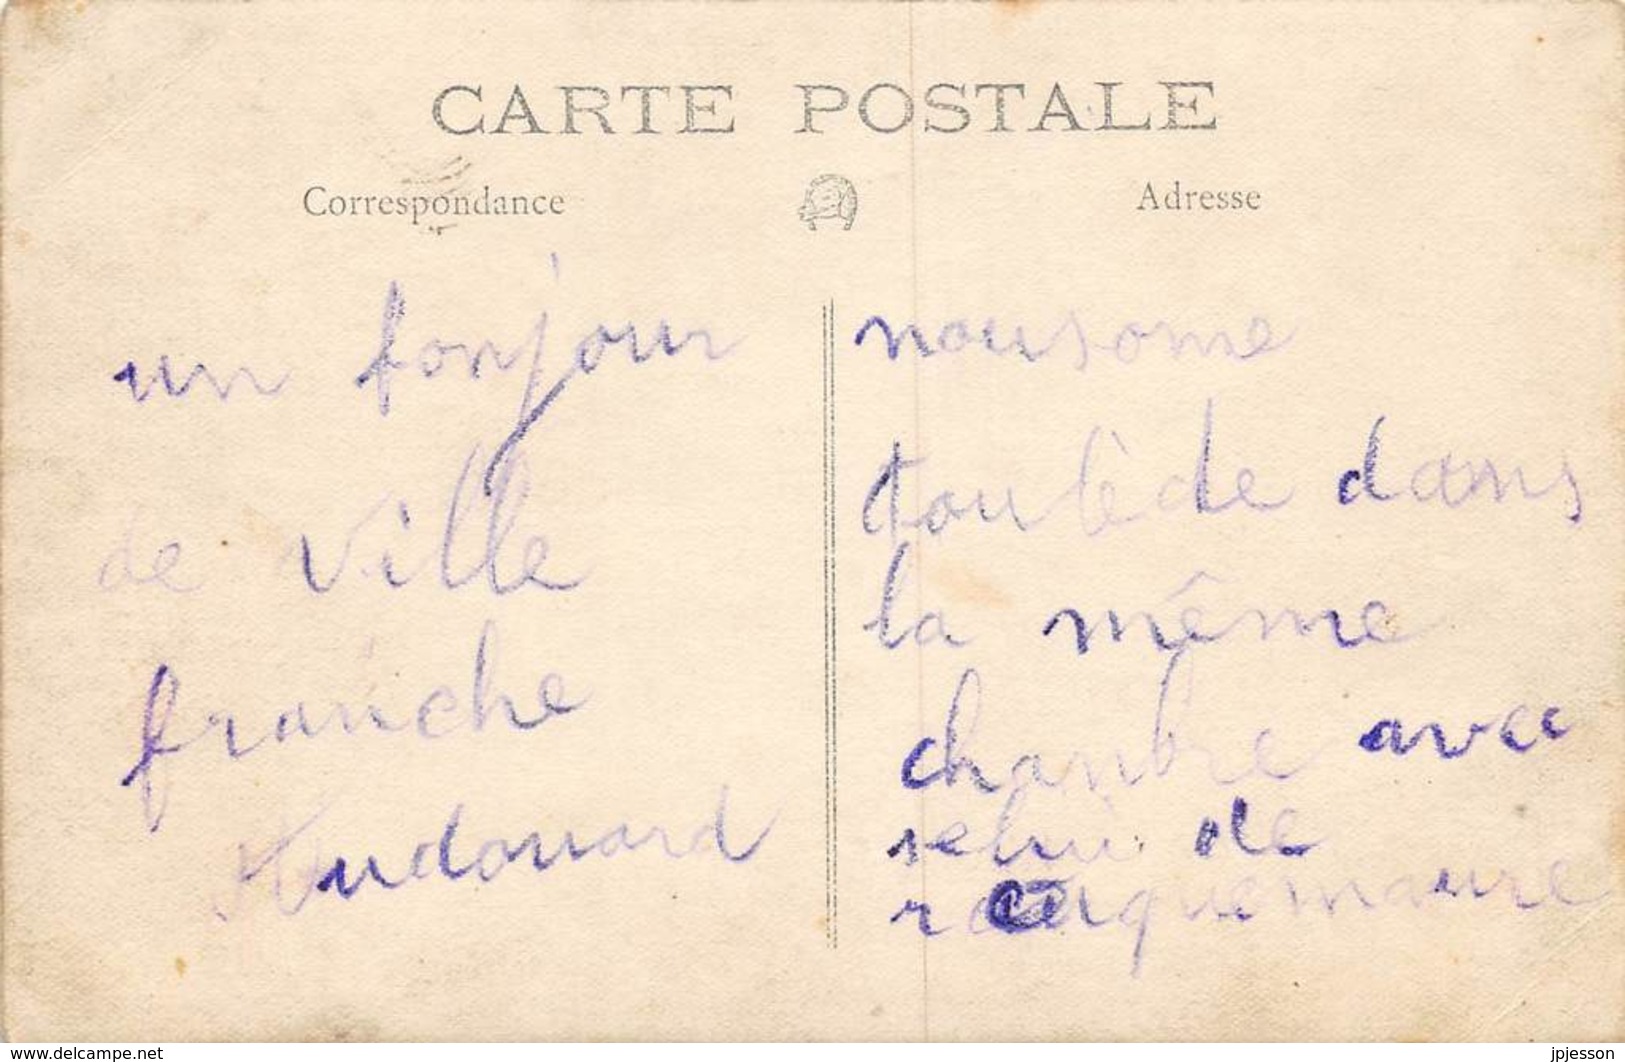 CARTE POSTALE
Correspondance
Adresse
un bonjour
de ville
franche
Audouard
nousome
toulède dans
la même
chanbre avec
selui de
roquemaure
www.delcampe.net
jpjesson